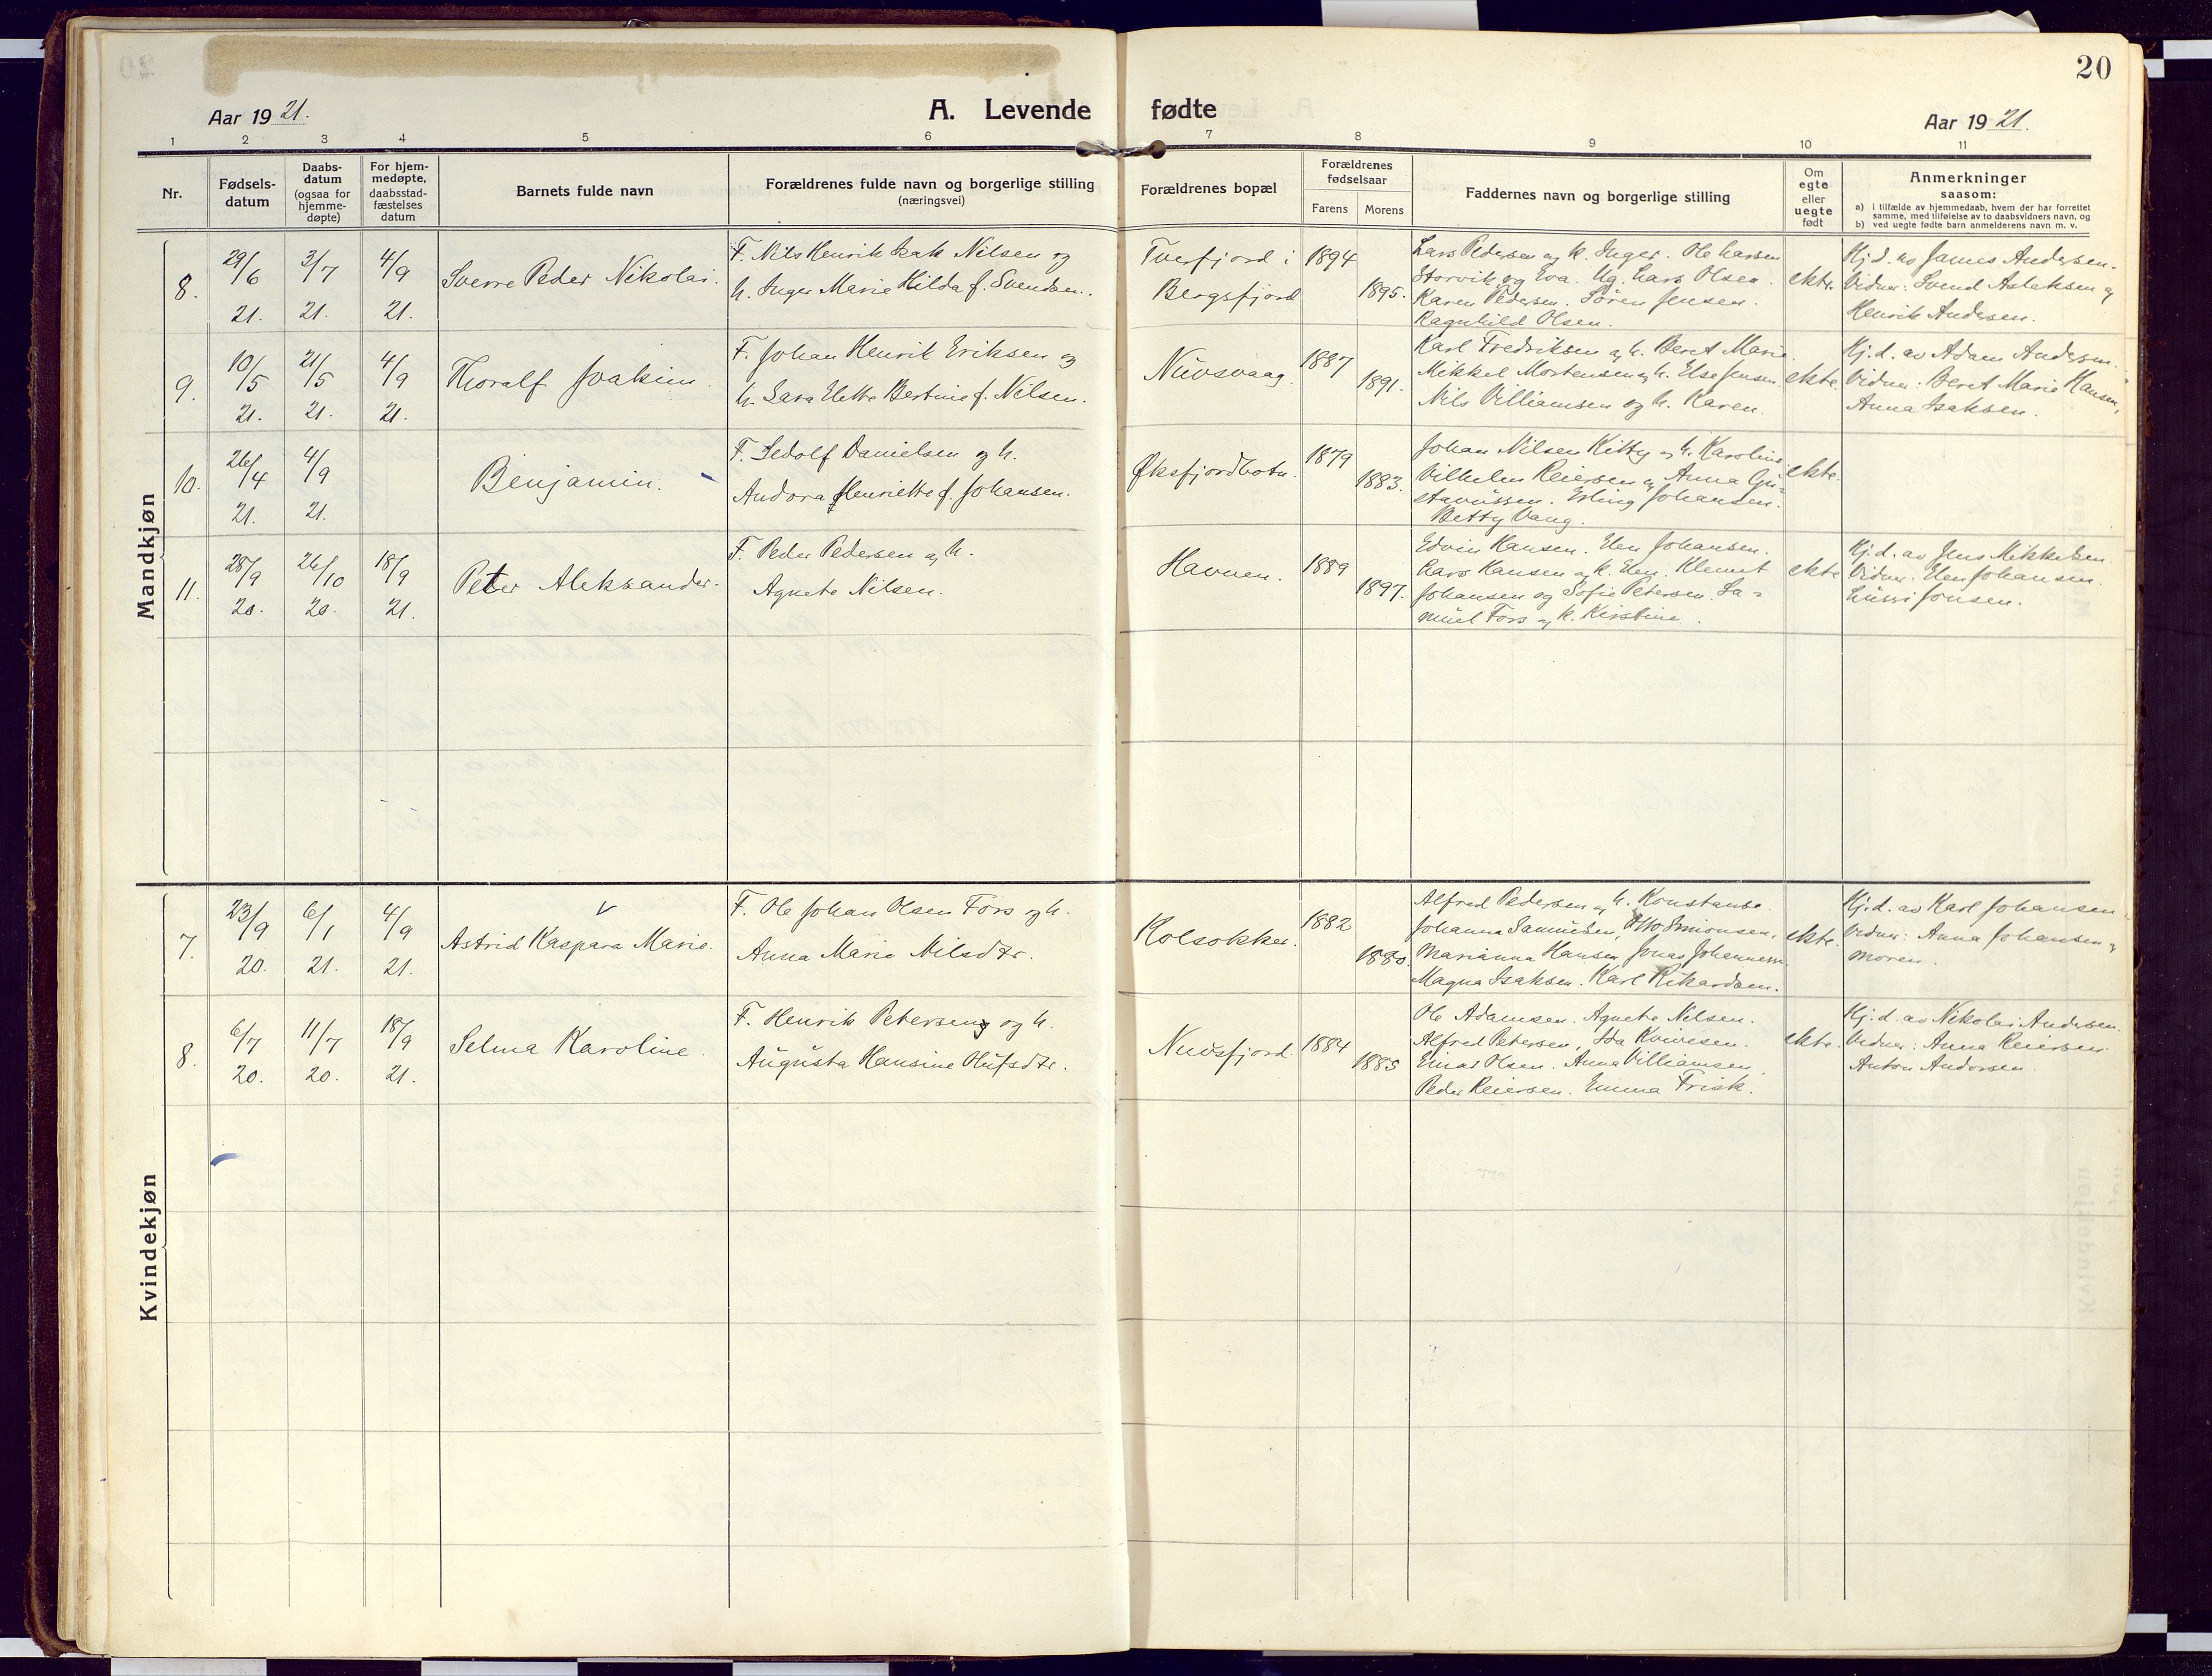 20
Aar 1921.
A. Levende fødte
Aar 1921.
1 2 3 4 5 6 7 8 9 10 11
Nr.
Fødsels-
datum
Daabs-
datum
(ogsaa for
hjemme-
døpte)
For hjem-
medøpte,
daabsstad-
fæstelses
datum
Barnets fulde navn
Forældrenes fulde navn og borgerlige stilling
(næringsvei)
Forældrenes bopæl
Forældrenes
fødselsaar
Farens Morens
Faddernes navn og borgerlige stilling
Om
egte
eller
uegte
født
Anmerkninger
saasom:
a) i tilfælde av hjemmedaab, hvem der har forrettet
samme, med tilføielse av to daabsvidners navn, og
b) ved uegte fødte barn anmelderens navn m. v.
Mandkjøn
8.
29/6 21.
3/7 21.
4/9 21.
Sverre Peder Nikolai.
F. Nils Henrik Isak Nilsen og
h. Inger Marie Hilda f. Svendsen.
Tverfjord i
Bergsfjord
1894
1895.
Lars Pedersen og h. Inger. Ole Larsen
Storvik og Eva. Ug. Lars Olsen.
Karen Pedersen. Søren Jensen.
Ragnhild Olsen.
ekte.
Hj. d. av James Andersen.
Vidner: Svend Aslaksen og
Henrik Andersen.
9.
10/5 21.
21/5 21.
4/9 21.
Thoralf Joakim.
F. Johan Henrik Eriksen og
h. Sara Elette Bertine f. Nilsen.
Nuvsvaag.
1887
1891.
Karl Fredriksen og h. Beret Marie.
Mikkel Mortensen og h. Else Jensen.
Nils Villiamsen og h. Karen.
ekte.
Hj. d. av Adam Andersen.
Vidner: Beret Marie Hansen,
Anna Isaksen.
10.
26/4 21.
4/9 21.
Benjamin.
F. Sedolf Danielsen og h.
Andora Henriette f. Johansen.
Øksfjordbotn.
1879
1883.
Johan Nilsen Kitty og h. Karoline
Vilhelm Reiersen og Anna Gu-
stavussen. Erling Johansen.
Betty Vang.
ekte.
11.
28/9 20.
26/10 20.
18/9 21.
Peter Aleksander.
F. Peder Pedersen og h.
Agnete Nilsen.
Havnen.
1889
1897.
Edvin Hansen. Elen Johansen.
Lars Hansen og h. Elen. Klemet
Johansen og Sofie Petersen. Sa-
muel Fors og h. Kirstine.
ekte
Hj. d. av Jens Mikkelsen.
Vidner: Elen Johansen.
Lussi Jonsen.
Kvindekjøn
7.
23/9 20.
6/1 21.
4/9 21.
Astrid Kaspara Marie.
F. Ole Johan Olsen Fors og h.
Anna Marie Nilsdtr.
Kolsokker.
1882
1880.
Alfred Pedersen og h. Konstanse.
Johanna Samuelsen, Otto Simonsen,
Marianna Hansen Jonas Johannessen.
Magna Isaksen. Karl Rikardsen.
ekte.
Hj. d. av Karl Johansen.
Vidner: Anna Johansen og
moren.
8.
6/7 20.
11/7 20.
18/9 21.
Selma Karoline.
F. Henrik Petersen og h.
Augusta Hansine Olufsdtr.
Nuvsfjord
1884
1885
Ole Adamsen. Agnete Nilsen.
Alfred Petersen, Ida Kvivesen.
Einar Olsen. Anna Villiamsen,
Peder Reiersen. Emma Frisk.
ekte.
Hj. d. av Nikolai Andersen.
Vidner: Anna Reiersen
Anton Andersen.